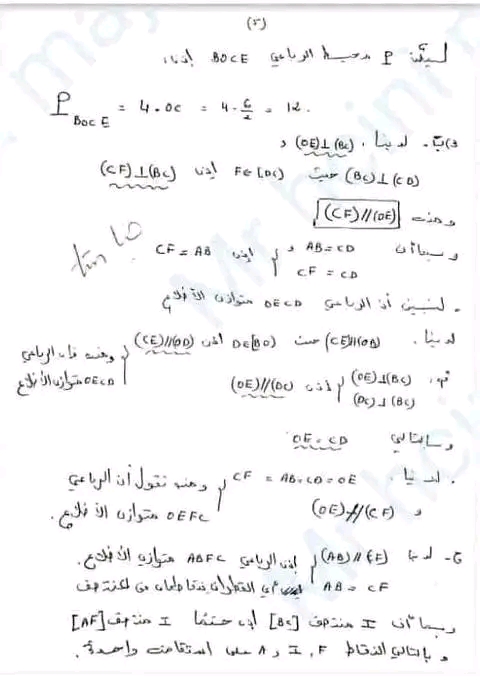 (5)
ليكن P محيط الرباعي BOCE إذن:
P BOCE = 4.OC = 4.6/2 = 12.
لدينا. (OE)⊥(BC) و
(BC)⊥(CD) حيث F∈[DC) إذن (CF)⊥(BC)
ومنه (CF)//(OE)
وبما أن AB=CD و CF=CD إذن CF=AB
. لنبين أن الرباعي OECD متوازي الأضلاع
لدينا. (CE)//(OB) حيث D∈[BO) إذن (CE)//(OD)
(OE)⊥(BC) (DC)⊥(BC) إذن (OE)//(DC)
ومنه فإن الرباعي OECD متوازي الأضلاع
وبالتالي OE=CD
. لدينا CF=AB=CD=OE
و (OE)//(CF) ومنه نقول أن الرباعي OEFC متوازي الأضلاع.
ج- لدينا (AB)//(CF) AB=CF إذن الرباعي ABFC متوازي الأضلاع.
أي القطران يتقاطعان في المنتصف
وبما أن I منتصف [BC] إذن حتما I منتصف [AF]
وبالتالي النقاط F، I و A على استقامة واحدة.
Mr